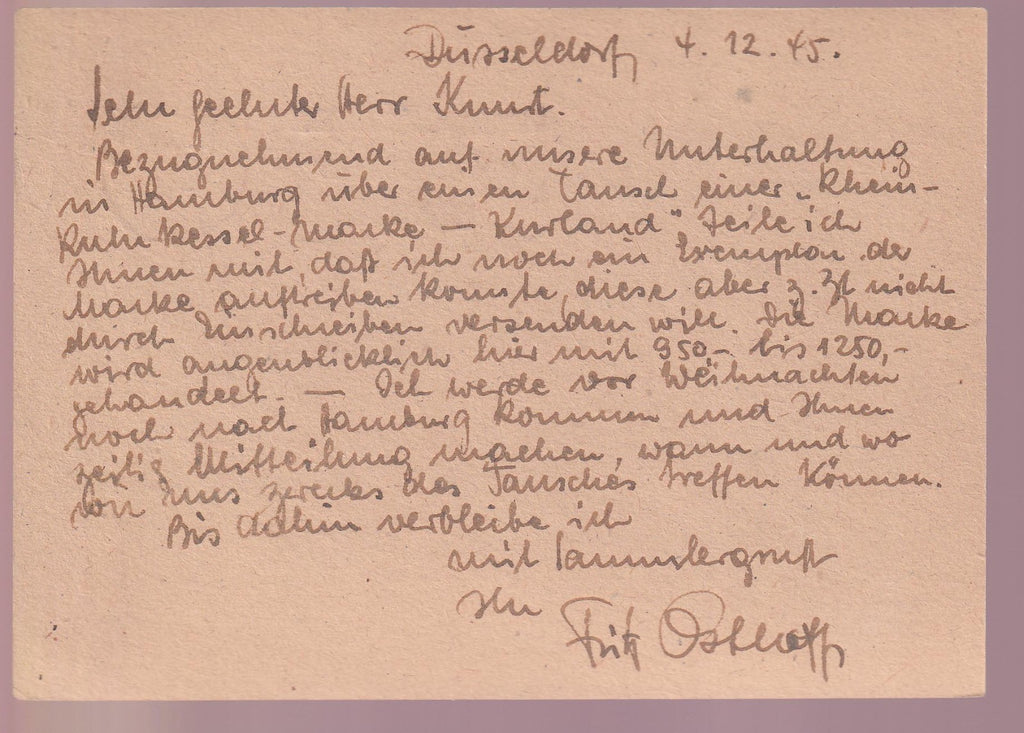 Düsseldorf, 4. 12. 45.
Sehr geehrter Herr Kunst.
Bezugnehmend auf unsere Unterhaltung
in Hamburg über einen Tausch einer „Rhein-
Ruhr Kessel-Marke — Kurland" teile ich
Ihnen mit, daß ich noch ein Exemplar der
Marke auftreiben konnte, diese aber z. Zt nicht
durch Einschreiben versenden will. Die Marke
wird augenblicklich hier mit 950,- bis 1250,-
gehandelt. — Ich werde vor Weihnachten
noch nach Hamburg kommen und Ihnen
zeitig Mitteilung machen, wann und wo
wir uns zwecks des Tausches treffen können.
Bis dahin verbleibe ich
mit Sammlergruß
Ihr
Fritz Osthoff